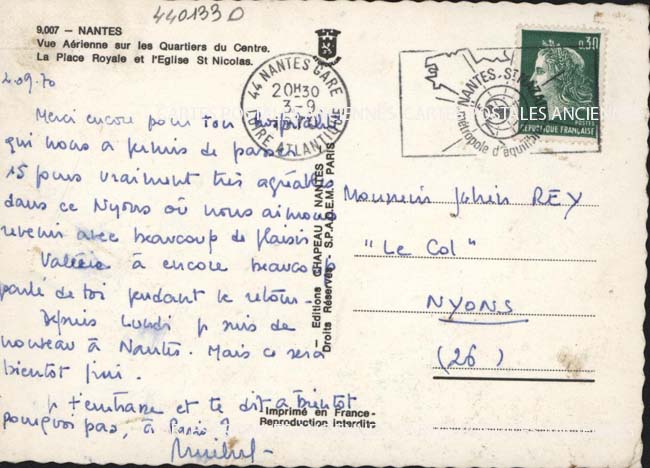 440133D
9.007 — NANTES
Vue Aérienne sur les Quartiers du Centre.
La Place Royale et l'Eglise St Nicolas.
44 NANTES GARE
20H30
3-9
LOIRE ATLANTIQUE
NANTES. ST
métropole d'équilibre
0,30
POSTES
REPUBLIQUE FRANÇAISE
CARTES POSTALES ANCIENNES CARTES POSTALES ANCIE
2.09.70
Merci encore pour ton hospitalité
qui nous a permis de passer
15 jours vraiment très agréables
dans ce Nyons où nous aimons
revenir avec beaucoup de plaisir
Valérie à encore beaucoup
parlé de toi pendant le retour.
Depuis Lundi je suis de
nouveau à Nantes. Mais ce sera
bientôt fini.
je t'embrasse et te dit à bientôt
pourquoi pas, à Paris ?
— Editions CHAPEAU — NANTES
Droits Réservés - S.P.A.D.E.M. PARIS
Imprimé en France-
Reproduction interdite
Monsieur REY
"Le Col"
NYONS
(26)